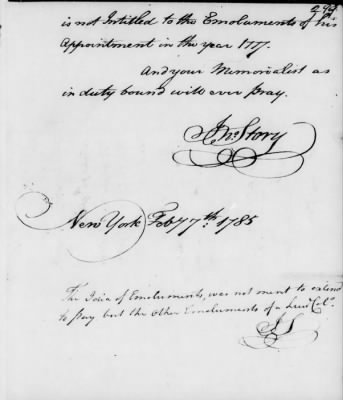 is not Intitled to the Emoluments of his
Appointment in the year 1777.
And your Memorialist as
in duty bound will ever pray.
Jno. Story
New York Feby 7th: 1785
The Idea of Emoluments, was not ment to extend
to pay but the other Emoluments of a Lieut Colo.
JS